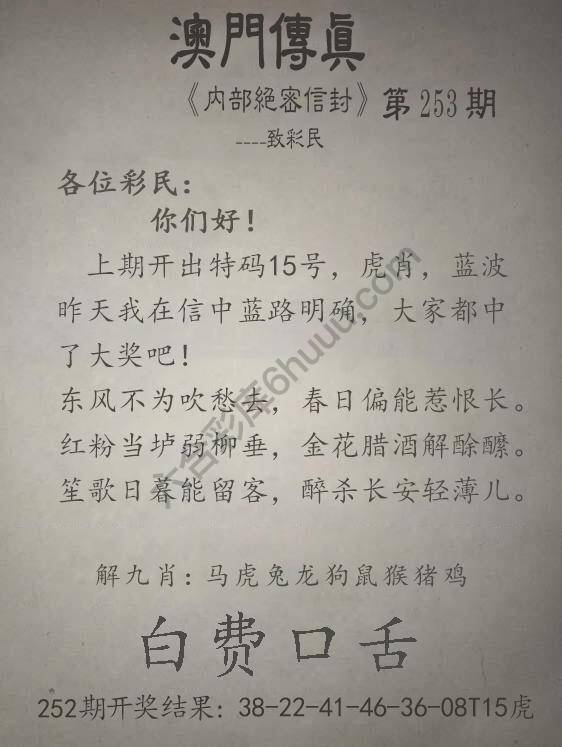 澳門傳真
《内部絕密信封》第253期
----致彩民
各位彩民：
你们好！
上期开出特码15号，虎肖，蓝波
昨天我在信中蓝路明确，大家都中
了大奖吧！
东风不为吹愁去，春日偏能惹恨长。
红粉当垆弱柳垂，金花腊酒解酴醿。
笙歌日暮能留客，醉杀长安轻薄儿。
解九肖：马虎兔龙狗鼠猴猪鸡
白费口舌
252期开奖结果：38-22-41-46-36-08T15虎
六合彩库6huuu.com